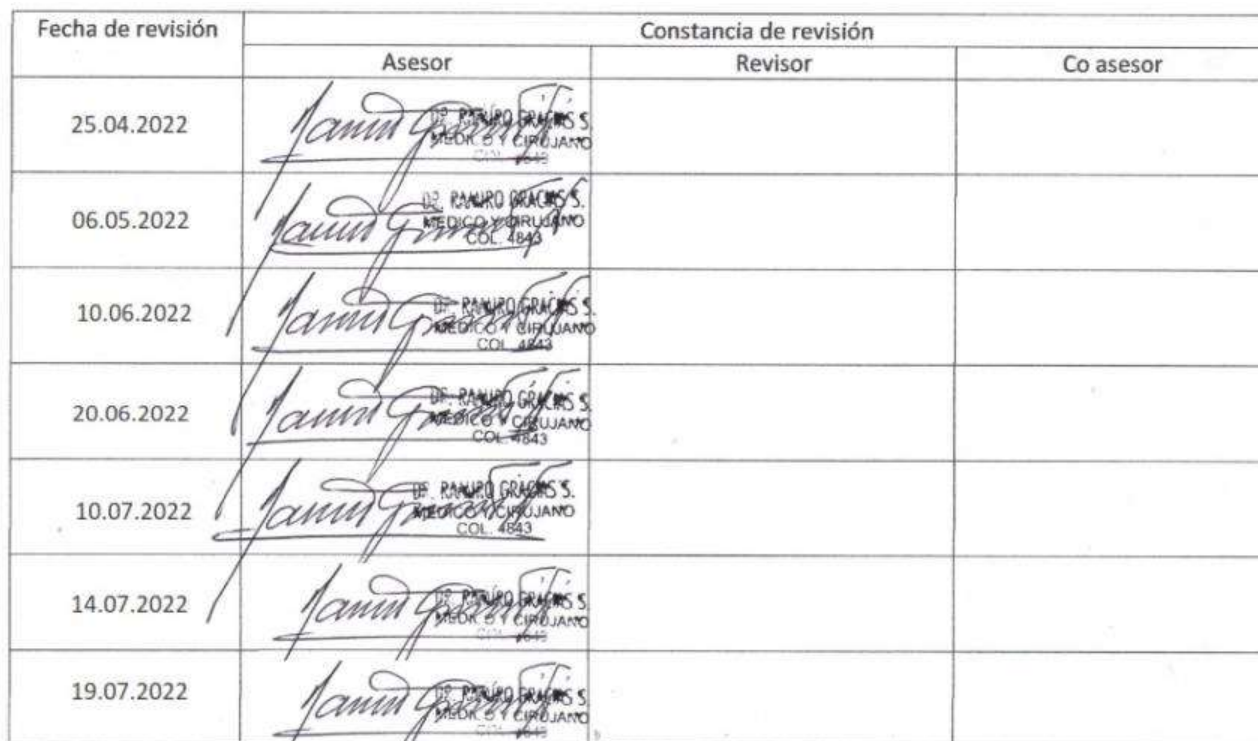 Fecha de revisión
Constancia de revisión
Asesor
Revisor
Co asesor
25.04.2022
DR. RAMIRO GRACIAS S.
MEDICO Y CIRUJANO
COL. 4843
06.05.2022
DR. RAMIRO GRACIAS S.
MEDICO Y CIRUJANO
COL. 4843
10.06.2022
DR. RAMIRO GRACIAS S.
MEDICO Y CIRUJANO
COL. 4843
20.06.2022
DR. RAMIRO GRACIAS S.
MEDICO Y CIRUJANO
COL. 4843
10.07.2022
DR. RAMIRO GRACIAS S.
MEDICO Y CIRUJANO
COL. 4843
14.07.2022
DR. RAMIRO GRACIAS S
MEDICO Y CIRUJANO
COL. 4843
19.07.2022
DR. RAMIRO GRACIAS S
MEDICO Y CIRUJANO
COL. 4843